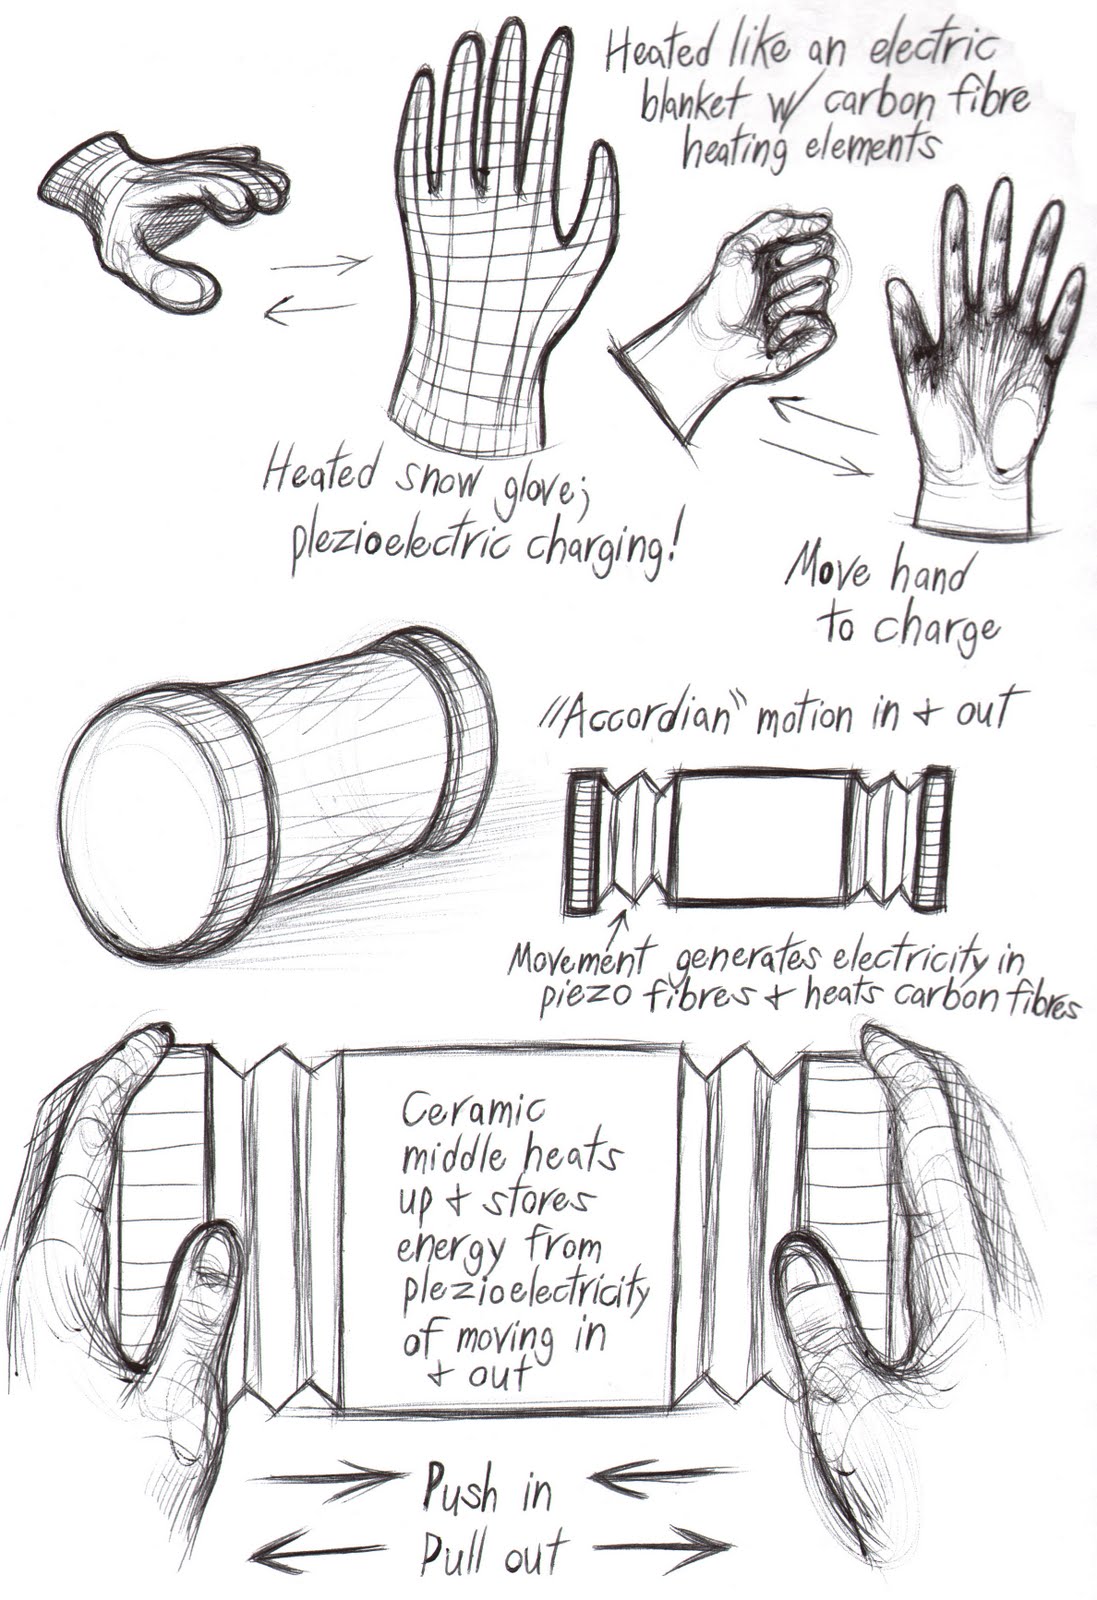 Heated like an electric
blanket w/ carbon fibre
heating elements
Heated snow glove;
plezioelectric charging!
Move hand
to charge
"Accordian" motion in + out
Movement generates electricity in
piezo fibres + heats carbon fibres
Ceramic
middle heats
up + stores
energy from
plezioelectricity
of moving in
+ out
Push in
Pull out